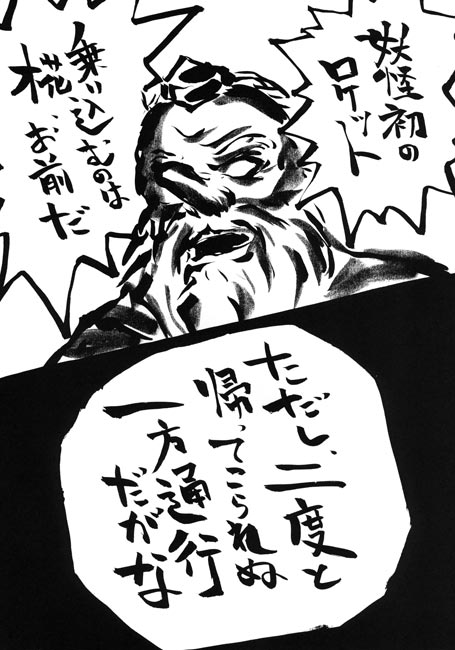 妖怪初の
ロケット
乗り込むのは
椛、お前だ
ただし、二度と
帰ってこられぬ
一方通行
だがな